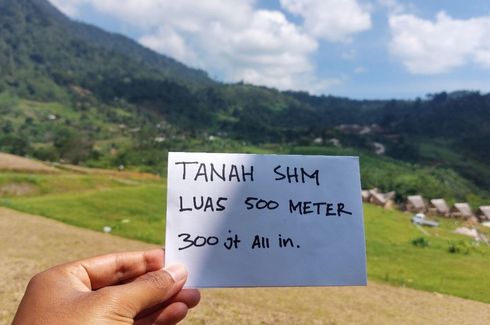 TANAH SHM
LUAS 500 METER
300 jt All in.